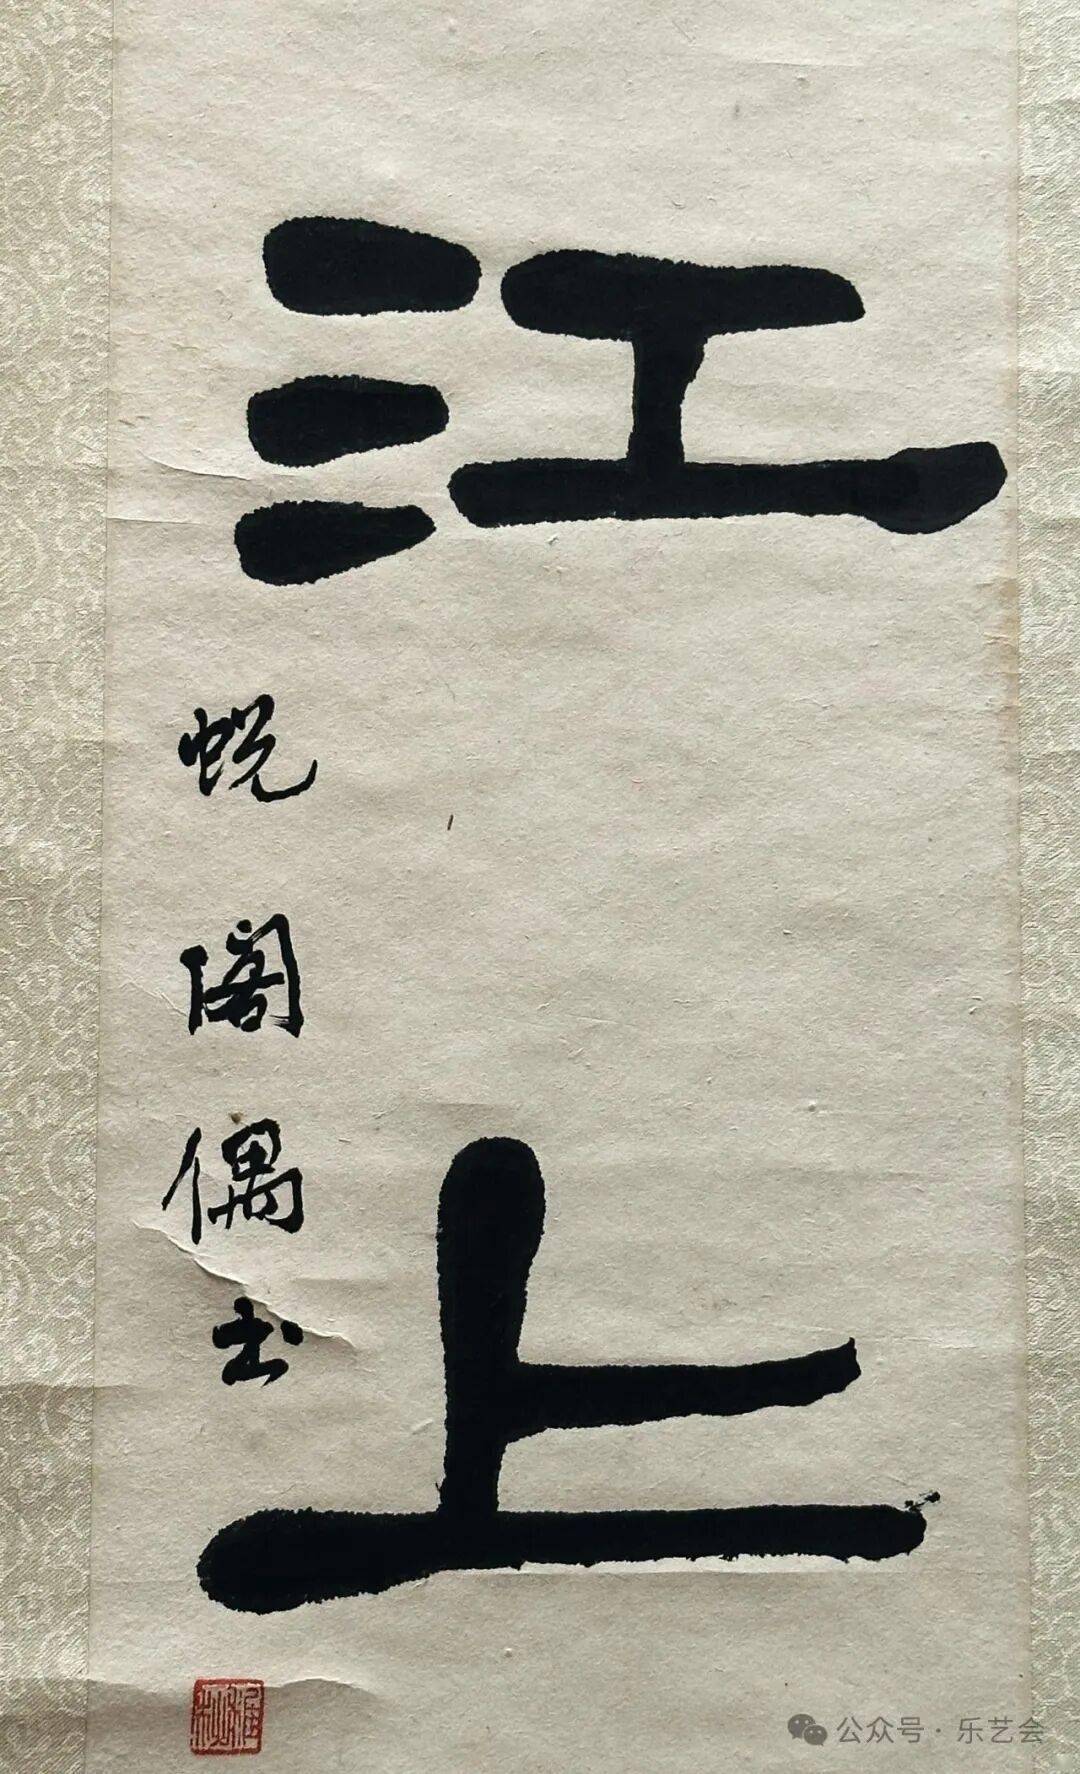 江上
蜕阁偶书
公众号·乐艺会